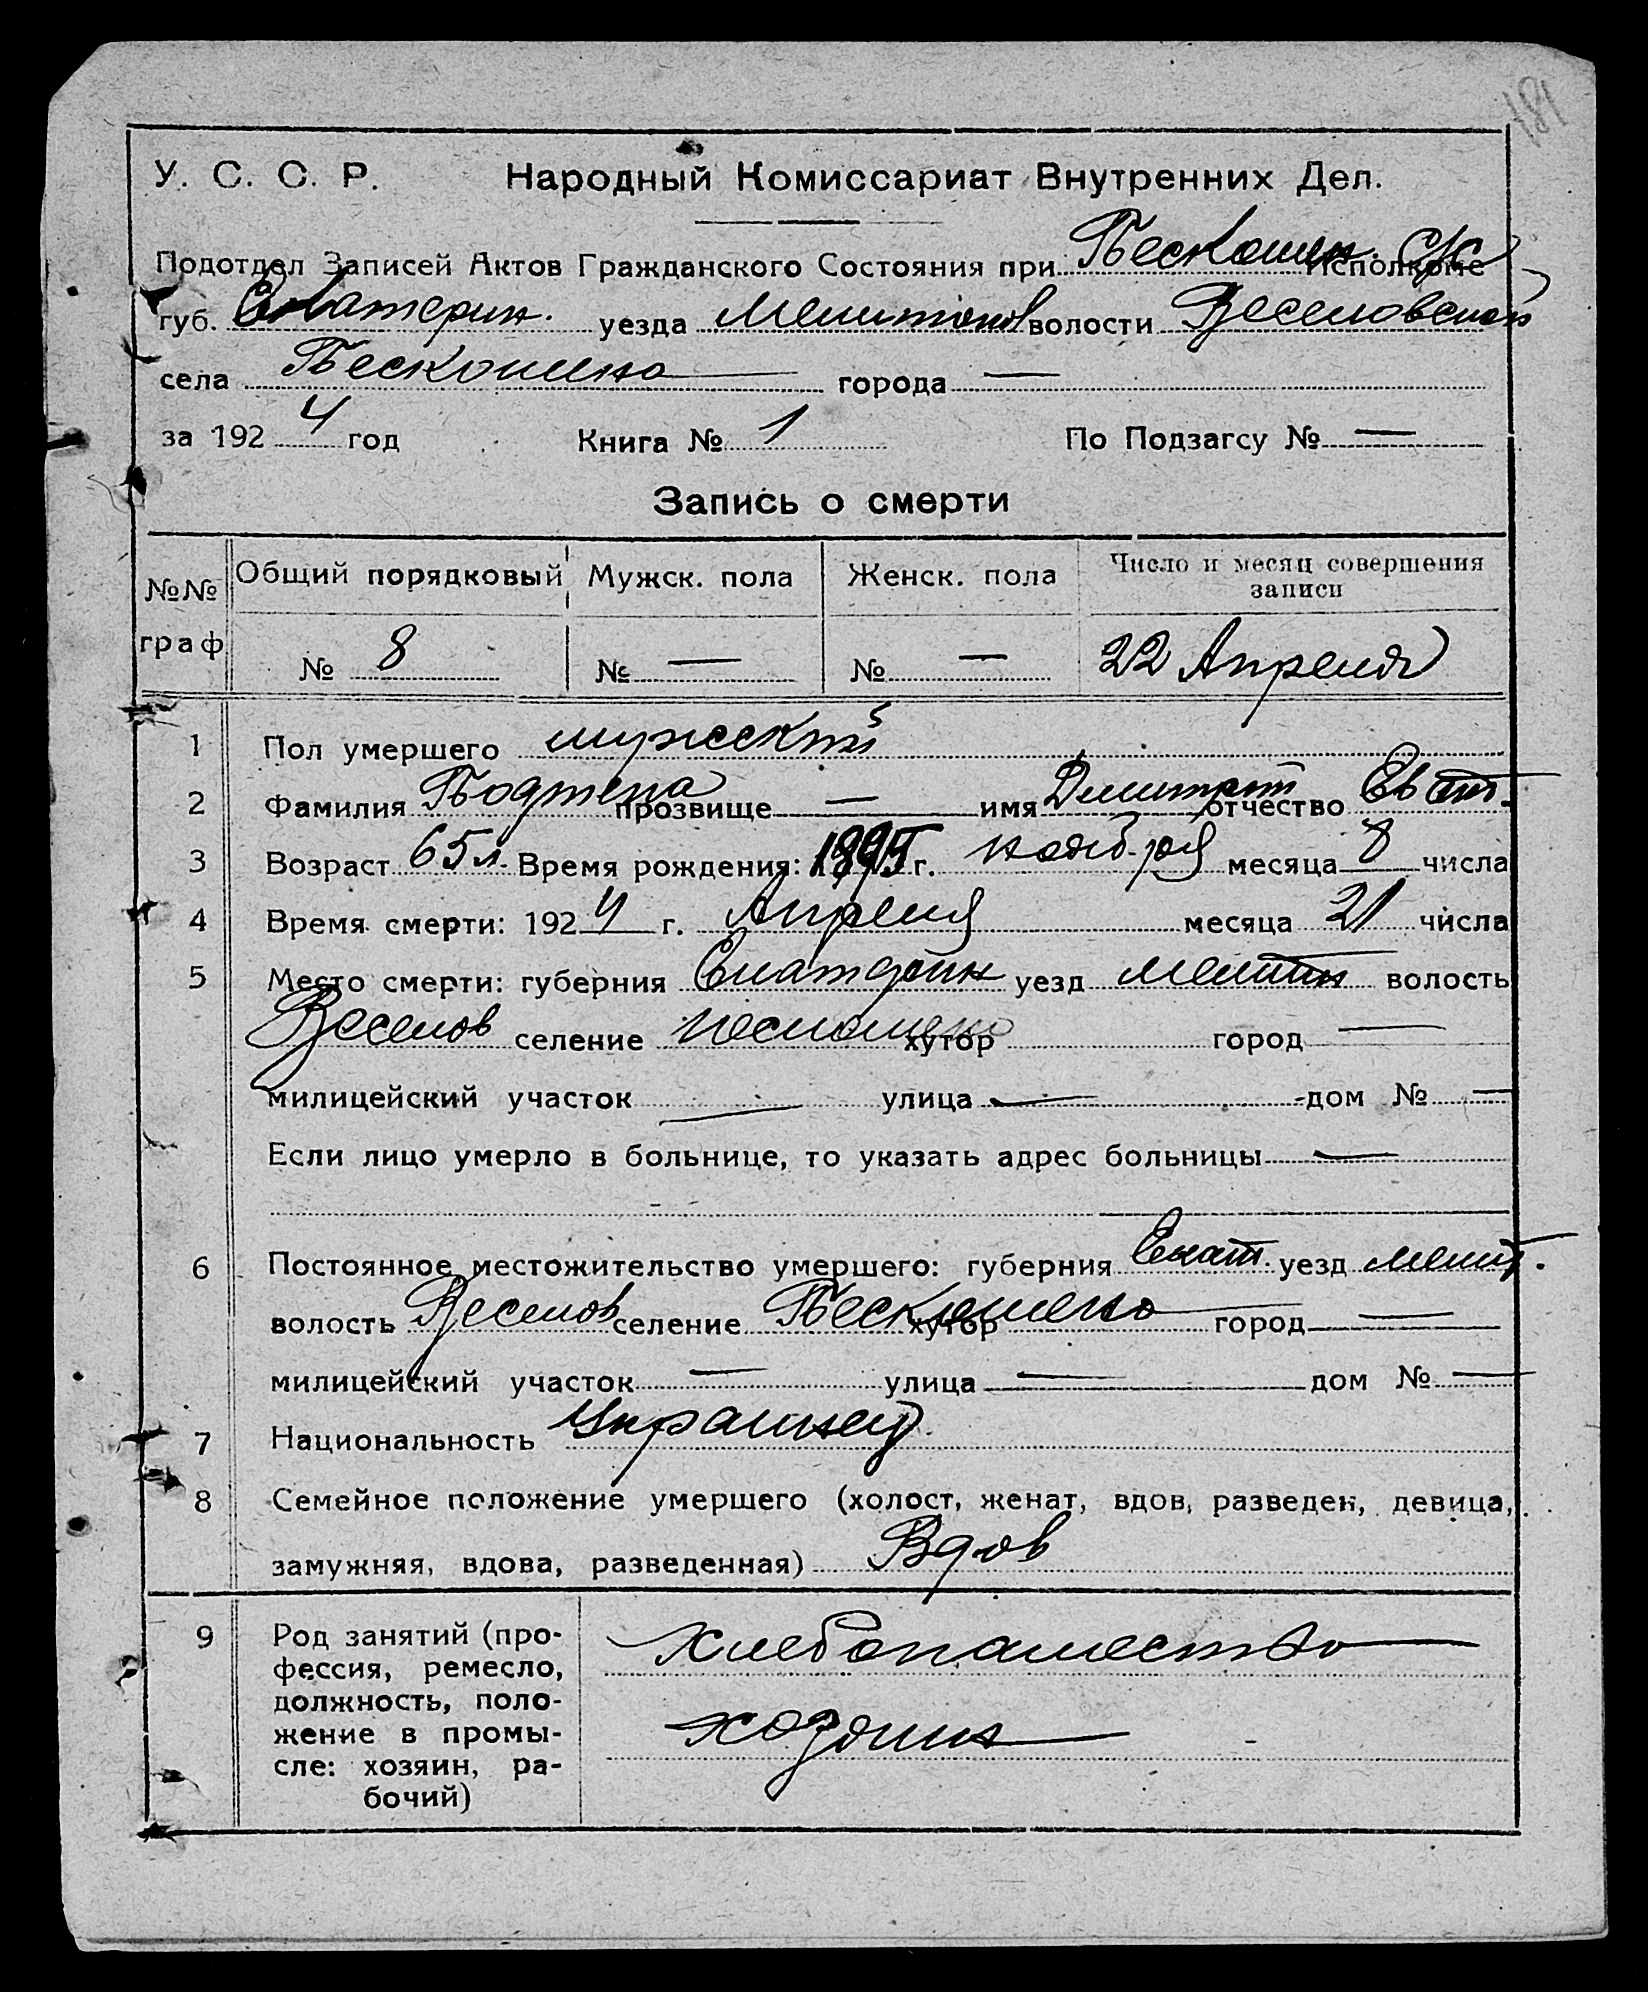 181
У. С. С. Р. Народный Комиссариат Внутренних Дел.
Подотдел Записей Актов Гражданского Состояния при Пескошин. с/с Исполкоме
губ. Екатерин. уезда Мелитопов волости Веселовской
села Пескошено города —
за 1924 год Книга № 1 По Подзагсу № —
Запись о смерти
№№ граф Общий порядковый Мужск. пола Женск. пола Число и месяц совершения записи
№ 8 № — № — 22 Апреля
1 Пол умершего мужский
2 Фамилия прозвище — имя Димитрий отчество
3 Возраст 65 л. Время рождения: г. ноября месяца 8 числа
4 Время смерти: 1924 г. Апреля месяца 21 числа
5 Место смерти: губерния Екатерин уезд Мелитоп волость
Веселов селение Пескошено хутор город —
милицейский участок — улица — дом № —
Если лицо умерло в больнице, то указать адрес больницы —
6 Постоянное местожительство умершего: губерния Екат. уезд Мелит.
волость Веселов селение Пескошено хутор город —
милицейский участок — улица — дом № —
7 Национальность Украинец
8 Семейное положение умершего (холост, женат, вдов, разведен, девица,
замужняя, вдова, разведенная) Вдов
9 Род занятий (про-
фессия, ремесло,
должность, поло-
жение в промы-
сле: хозяин, ра-
бочий)
хлебопашество
хозяин